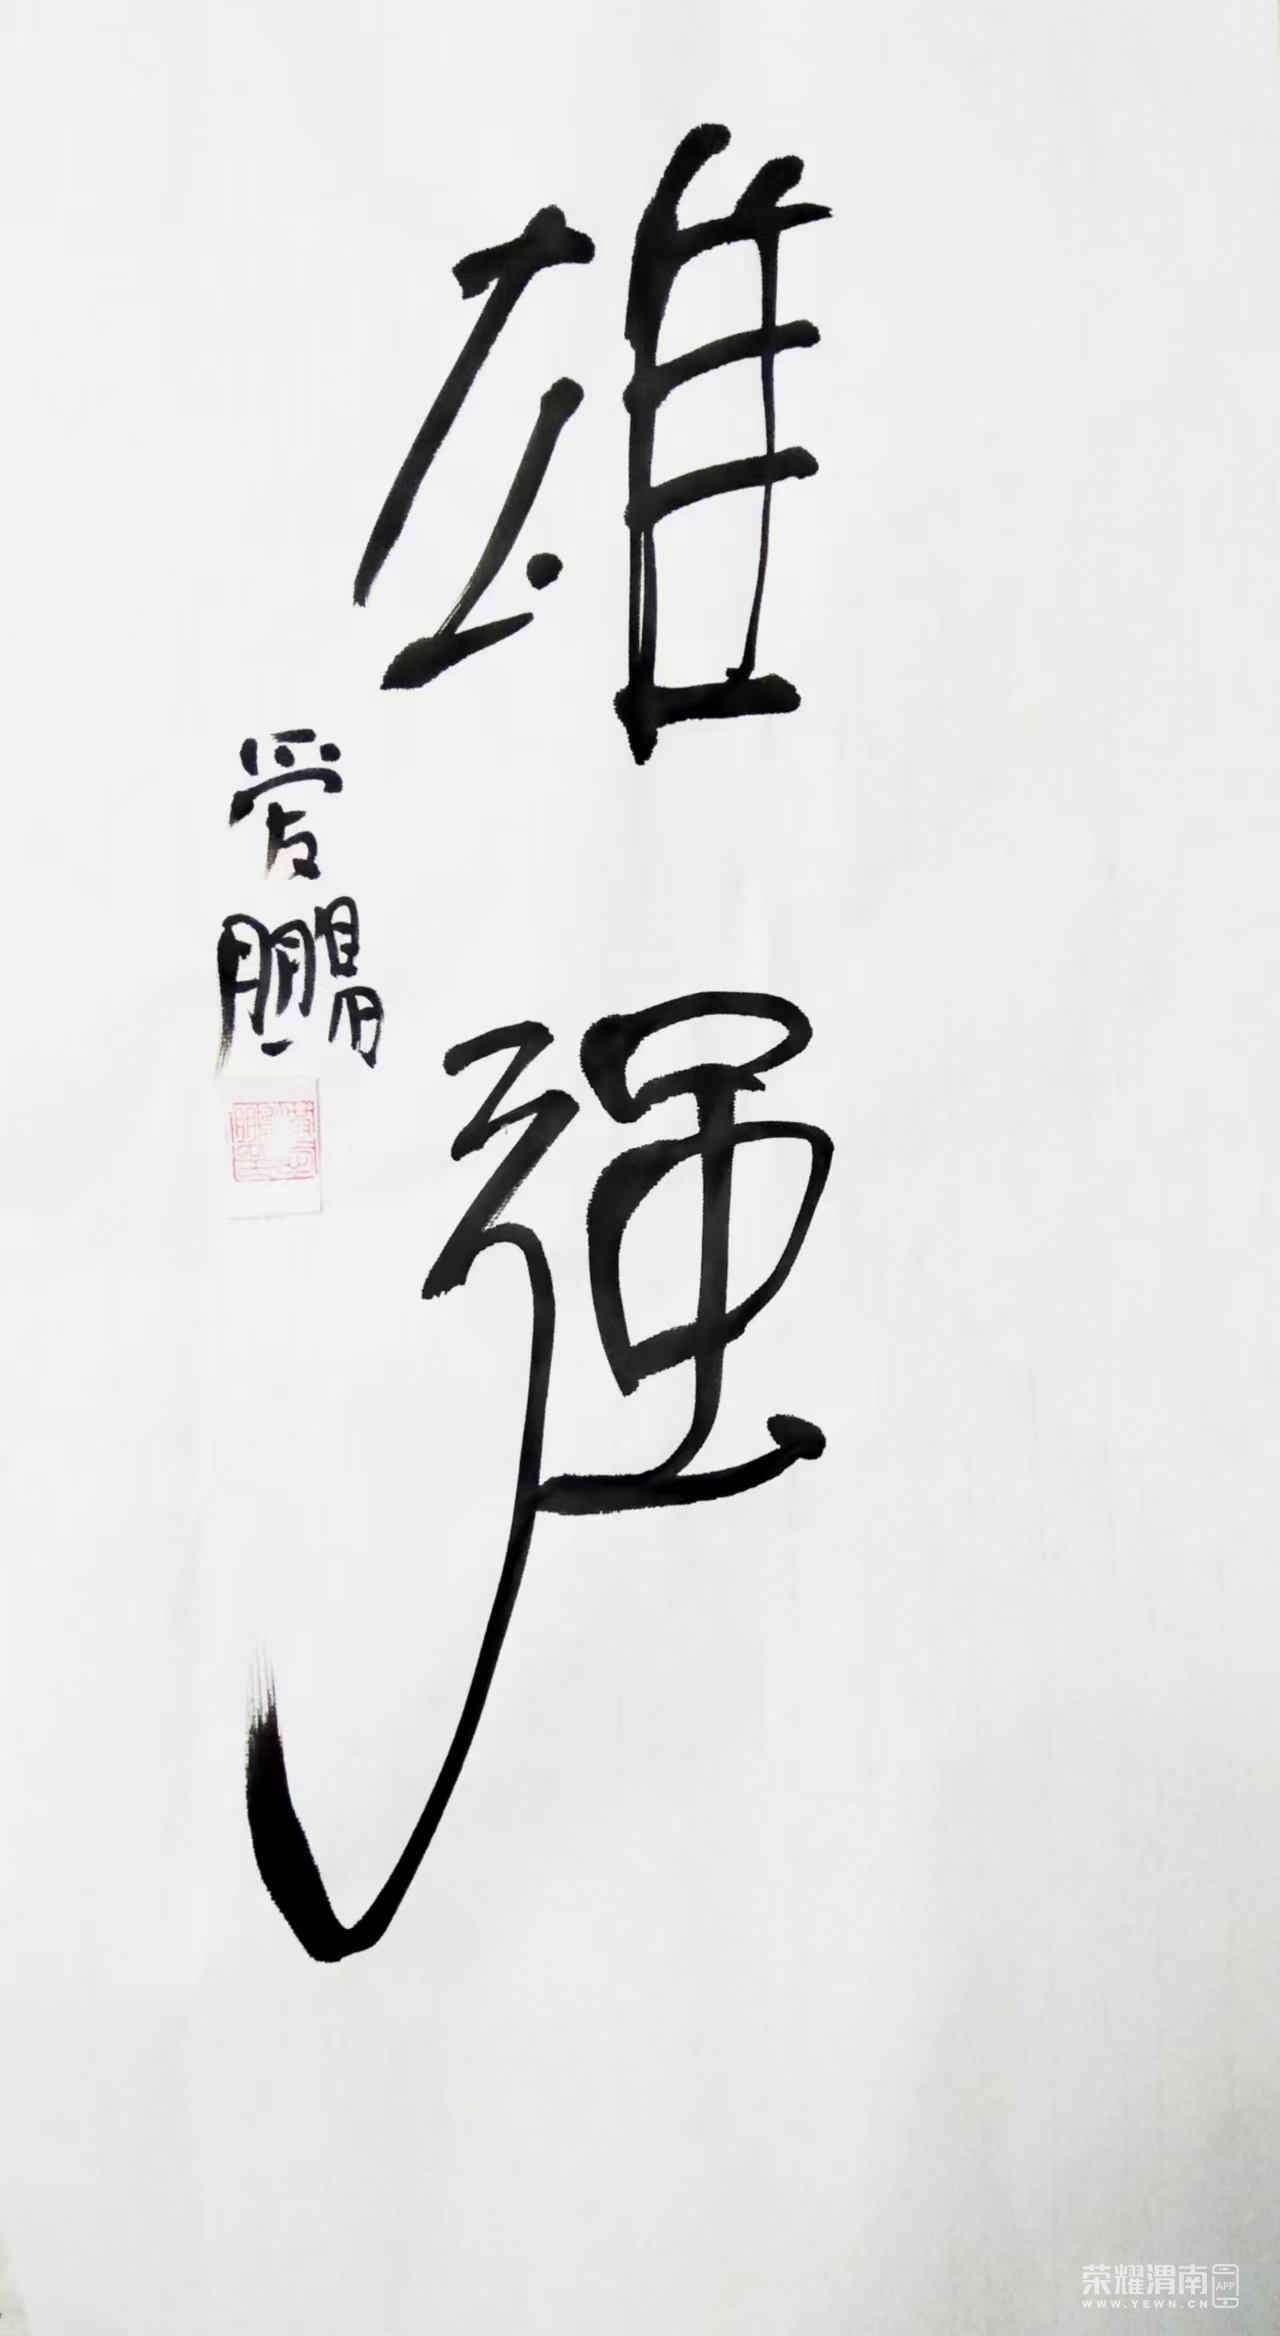 雄强
爱鹏
荣耀渭南 APP
WWW.YEWN.CN